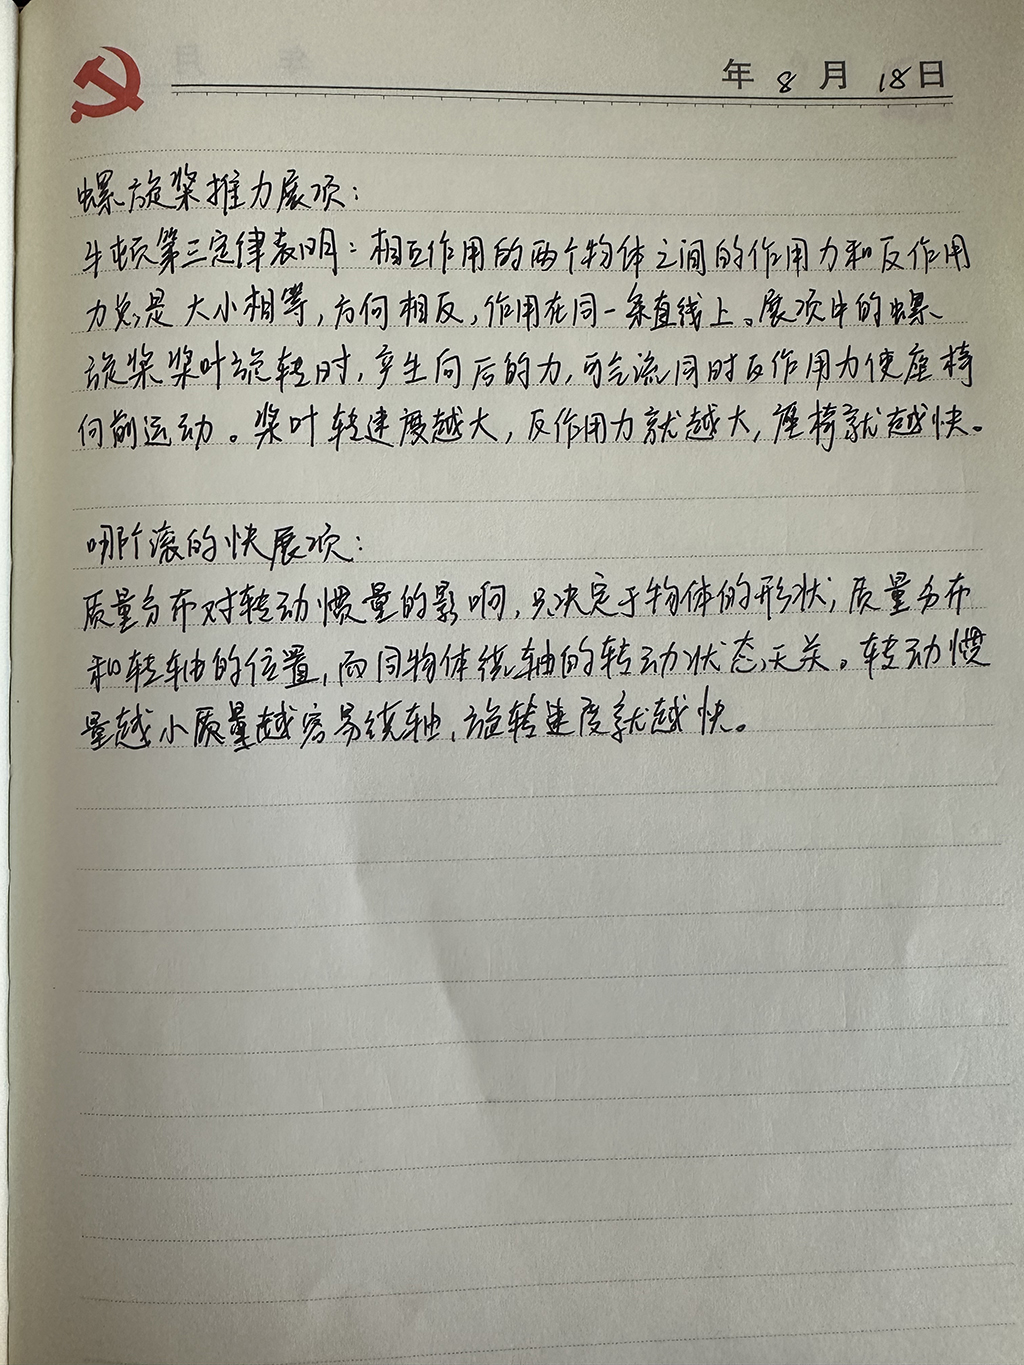 年 8 月 18日
螺旋桨推力展项:
牛顿第三定律表明:相互作用的两个物体之间的作用力和反作用
力总是大小相等,方向相反,作用在同一条直线上。展项中的螺
旋桨桨叶旋转时,产生向后的力,气流同时反作用力使座椅
向前运动。桨叶转速度越大,反作用力就越大,座椅就越快。
哪个滚的快展项:
质量分布对转动惯量的影响,只决定于物体的形状,质量分布
和转轴的位置,而同物体绕轴的转动状态无关。转动惯
量越小质量越容易绕轴,旋转速度就越快。